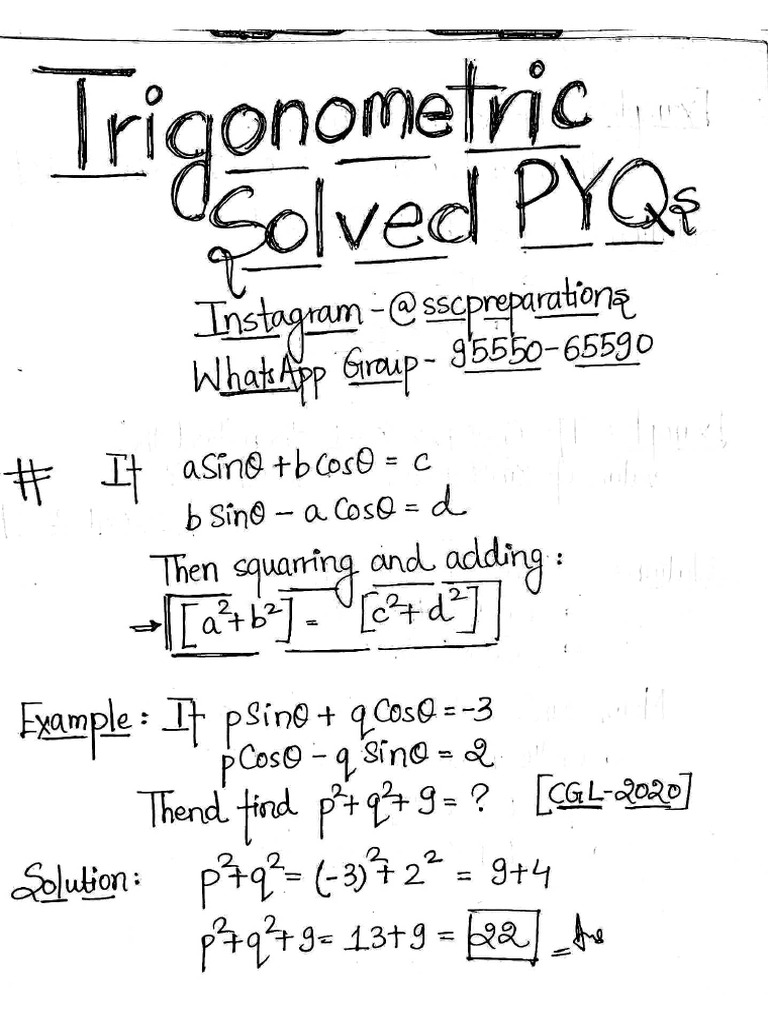 Trigonometric
Solved PYQs
Instagram - @sscpreparations
WhatsApp Group - 95550-65590
# If aSinθ + bCosθ = c
bSinθ - aCosθ = d
Then squarring and adding:
→ [a²+b²] = [c²+d²]
Example: If pSinθ + qCosθ = -3
pCosθ - qSinθ = 2
Thend find p²+q²+9 = ? [CGL-2020]
Solution: p²+q² = (-3)²+2² = 9+4
p²+q²+9 = 13+9 = 22 = Ans